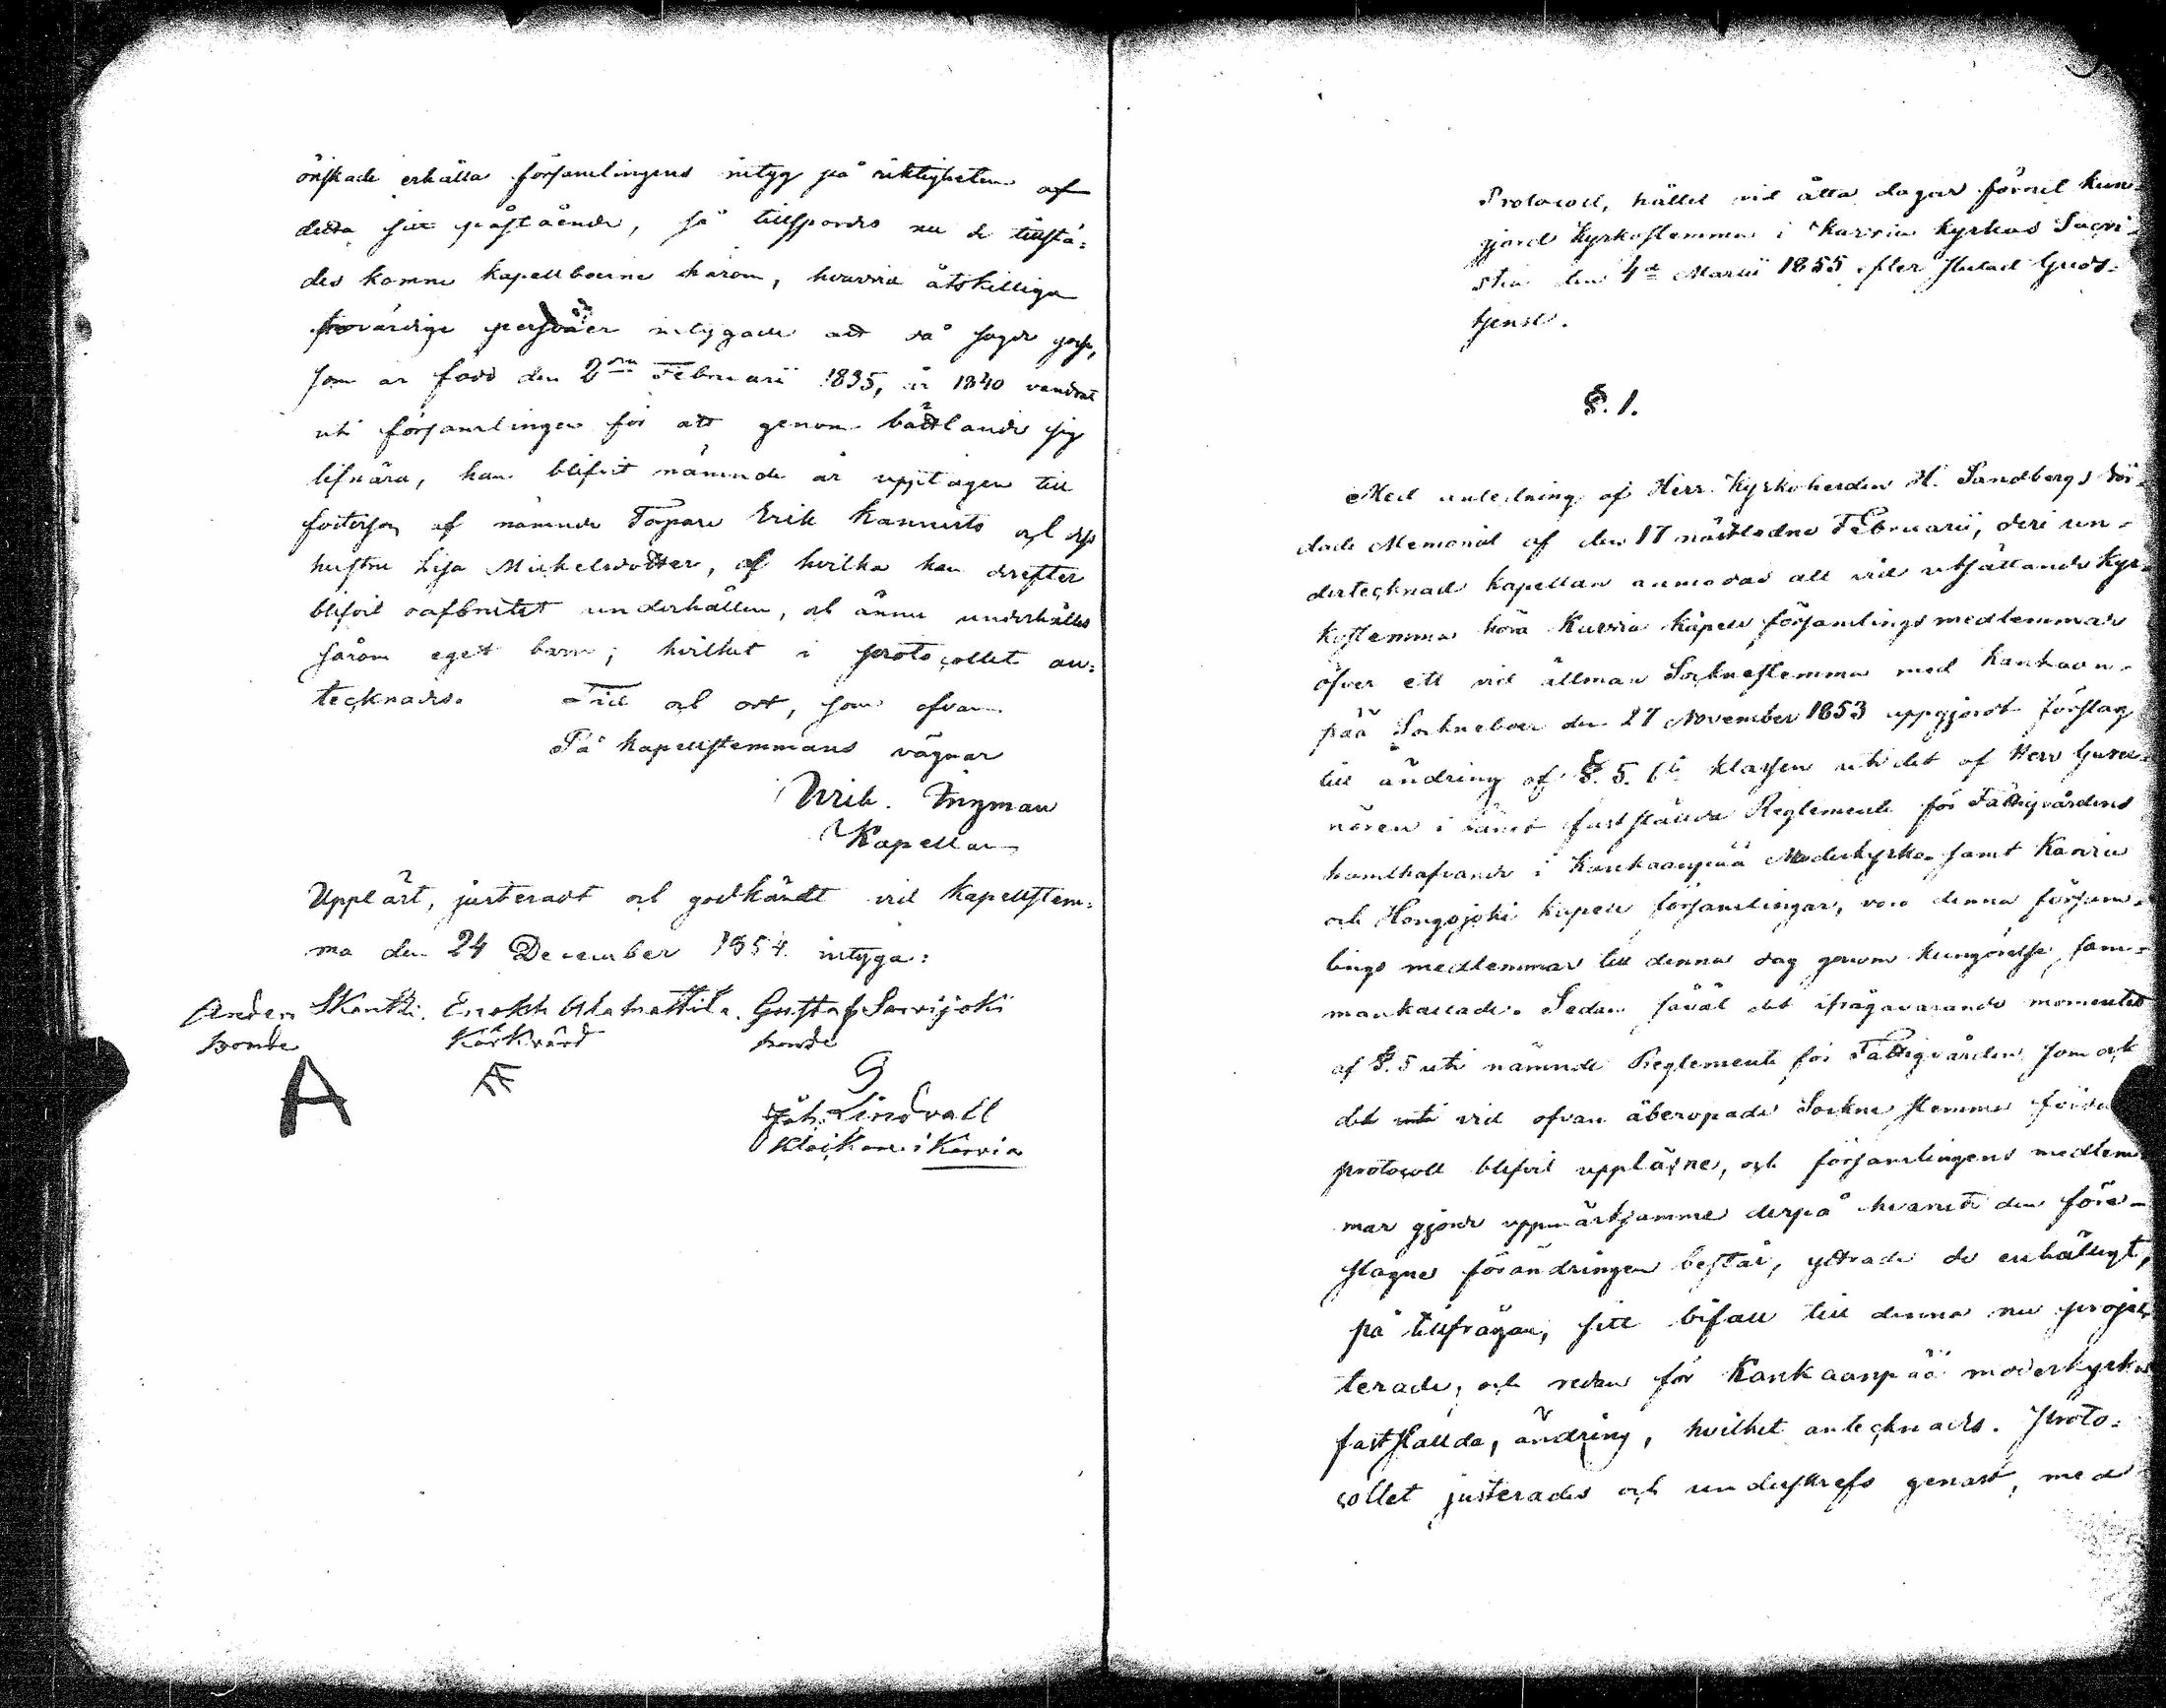 önskade erhålla församlingens intyg på riktigheten af
detta sitt påstående, så tillspordes nu de tillstä=
des komne kapellboerne härom, hvarvid åtskillige
trovärdige personer intygade att då sagde gosse,
som är född den 2dra Februarii 1835, år 1840 vandrat
uti församlingen för att genom bettlande sig
lifnära, han blifvit nämnde år upptagen till
fosterson af nämnde Torpare Erik Kannisto och dess
hustru Lisa Michelsdotter, af hvilka han derefter
blifvit oafbrutet underhållen, och ännu underhålles
såsom eget barn; hvilket i protocollet an=
tecknades. Tid och ort, som ofvan
På kapellstemmans vägnar
Wilh. Ingman
Kapellan
Uppläst, justeradt och godkändt vid kapellstem=
ma den 24 December 1854. intyga:
Anders Skantki. Enokh Alamattila. Gustaf Sarvijoki
bonde Kÿrkvärd bonde
A G
Joh. Lindvall
Klåckare i Karvia
Protocoll, hållet vid åtta dagar förut kun=
gjord Kyrkostemma i Karvia Kyrkas Sacri=
stia den 4de Martii 1855 efter slutad Guds=
tjenst.
§. 1.
Med anledning af Herr Kyrkoherden H. Sandbergs vör=
dade Memorial af den 17 nästledne Februarii, deri un=
dertecknad kapellan anmodas att vid utsättande Kyr=
kostemma höra Karvia kapells församlingsmedlemmar
öfver ett vid allmän Socknestemma med Kankaan=
pää Sockneboer den 27 November 1853 uppgjordt förslag
till ändring af §. 5. klassen uti det af Herr Guver=
nören i länet fastställda Reglemente för Fattigvårdens
handhafvande i Kankaanpää Moderkyrko samt Karvia
och Hongojoki kapells församlingar, voro denna försam=
lings medlemmar till denna dag genom kungörelse sam=
mankallade. Sedan såväl det ifrågavarande momentet
af §. 5 uti nämnde Reglemente för Fattigvården som ock
det vid ofvan åberopade Sockne stemma förda
protocoll blifvit uppläsne, och församlingens medlem=
mar gjorde uppmärksamme derpå hvaruti den före=
slagne förändringen består, yttrade de enhälligt,
på tillfrågan, sitt bifall till denna nu projec=
terade, och redan för Kankaanpää moderkyrka
fastställda, ändring, hvilket antecknades. Proto=
collet justerades och underskrefs genast, med